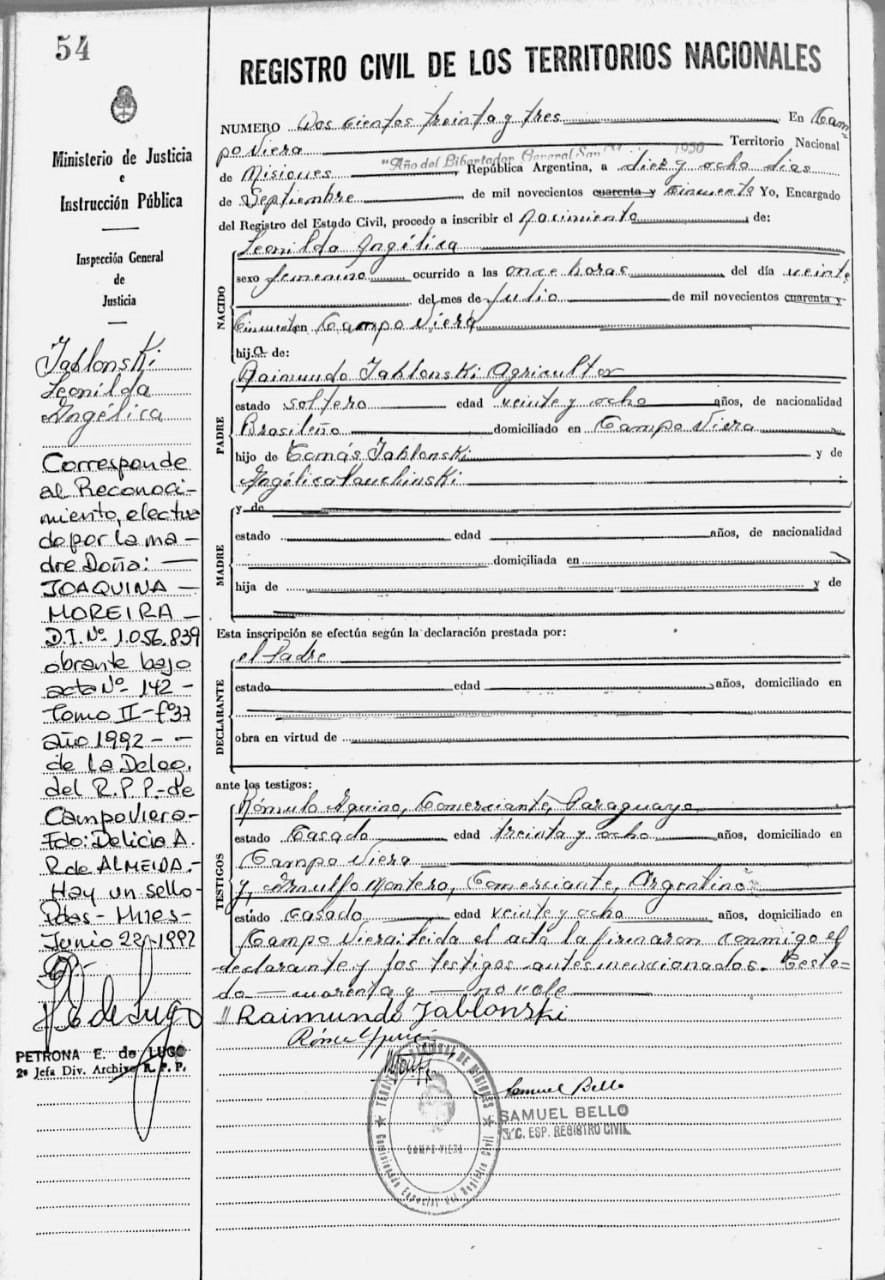 54
Ministerio de Justicia
e
Instrucción Pública
Inspección General
de
Justicia
Jablonski
Leonilda
Angélica
Corresponde
al Reconoci-
miento, efectua
do por la ma-
dre Doña: —
JOAQUINA —
MOREIRA —
D.I. Nº 1.056.839
obrante bajo
acta Nº 142 -
Tomo II - fº 37
año 1992 - -
de la Deleg.
del R.P.P. - de
Campo Viera -
Fdo: Delicia A.
R. de ALMEIDA.-
Hay un sello -
Pdas - Mnes -
Junio 22-1992
PETRONA E. de LUGO
2ª Jefa Div. Archivo R. P. P.
REGISTRO CIVIL DE LOS TERRITORIOS NACIONALES
NUMERO Dos cientos treinta y tres En Cam
po Viera Territorio Nacional
"Año del Libertador General San 1950
de Misiones República Argentina, a diez y ocho dias
de Septiembre de mil novecientos cuarenta y cincuenta Yo, Encargado
del Registro del Estado Civil, procedo a inscribir el nacimiento de:
NACIDO
Leonilda Angélica
sexo femenino ocurrido a las once horas del día veinte
del mes de Julio de mil novecientos cuarenta y
cincuenta en Campo Viera
hija de:
PADRE
Raimundo Jablonski Agricultor
estado soltero edad veinte y ocho años, de nacionalidad
Brasileño domiciliado en Campo Viera
hijo de Tomás Jablonski y de
Angélica
MADRE
y de
estado edad años, de nacionalidad
domiciliada en
hija de y de
Esta inscripción se efectúa según la declaración prestada por:
DECLARANTE
el Padre
estado edad años, domiciliado en
obra en virtud de
ante los testigos:
TESTIGOS
Rómulo Aquino, Comerciante, Paraguayo
estado Casado edad treinta y ocho años, domiciliado en
Campo Viera
y, Arnulfo Montero, Comerciante, Argentino
estado Casado edad veinte y ocho años, domiciliado en
Campo Viera: leida el acta la firmaron conmigo el
declarante y los testigos antes mencionados. Testa-
do — cuarenta y — no vale
Raimundo Jablonski
Samuel Bello
SAMUEL BELLO
C. ESP. REGISTRO CIVIL
CAMPO VIERA
Comisionado Especial del Registro Civil